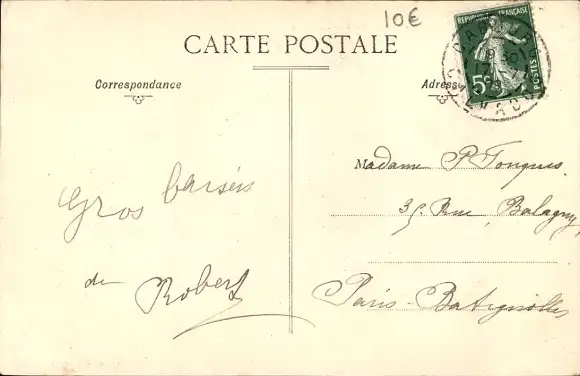 10€
CARTE POSTALE
RÉPUBLIQUE FRANÇAISE
5c
POSTES
CALVADOS
Correspondance
Adresse
Gros baisers
de Robert
Madame P.
35 Rue Balagny
Paris-Batignolles